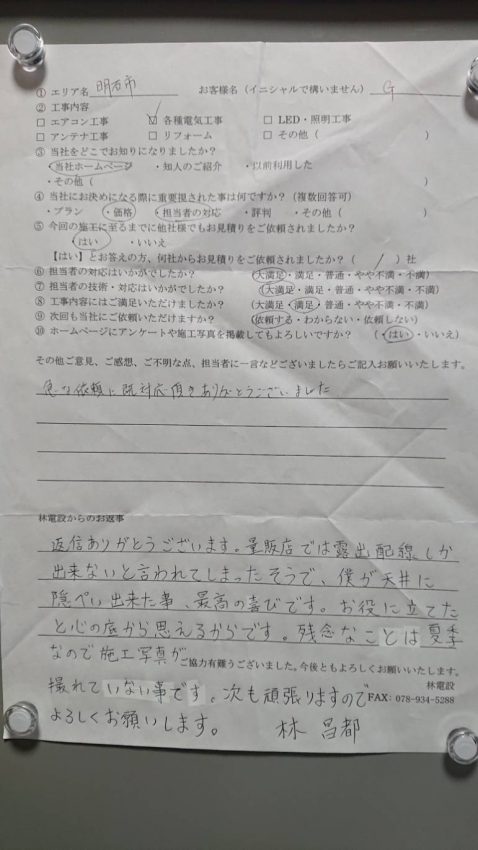 ① エリア名 明石市 お客様名（イニシャルで構いません） G
② 工事内容
□ エアコン工事 ☑ 各種電気工事 □ LED・照明工事
□ アンテナ工事 □ リフォーム □ その他（ ）
③ 当社をどこでお知りになりましたか？
・当社ホームページ ・知人のご紹介 ・以前利用した
・その他（ ）
④ 当社にお決めになる際に重要視された事は何ですか？（複数回答可）
・プラン ・価格 ・担当者の対応 ・評判 ・その他（ ）
⑤ 今回の施工に至るまでに他社様でもお見積りをご依頼されましたか？
・はい ・いいえ
【はい】とお答えの方、何社からお見積りをご依頼されましたか？（ / ）社
⑥ 担当者の対応はいかがでしたか？ （大満足・満足・普通・やや不満・不満）
⑦ 担当者の技術・対応はいかがでしたか？ （大満足・満足・普通・やや不満・不満）
⑧ 工事内容にはご満足いただけましたか？ （大満足・満足・普通・やや不満・不満）
⑨ 次回も当社にご依頼いただけますか？ （依頼する・わからない・依頼しない）
⑩ ホームページにアンケートや施工写真を掲載してもよろしいですか？ （・はい・いいえ）
その他ご意見、ご感想、ご不明な点、担当者に一言などございましたらご記入お願いいたします。
急な依頼に 対応頂きありがとうございました
林電設からのお返事
返信ありがとうございます。量販店では露出配線しか
出来ないと言われてしまったそうで、僕が天井に
隠ぺい出来た事、最高の喜びです。お役に立てた
と心の底から思えるからです。残念なことは夏季
なので施工写真が
ご協力有難うございました。今後ともよろしくお願いいたします。
林電設
撮れていない事です。次も頑張りますので
FAX: 078-934-5288
よろしくお願いします。 林 昌都